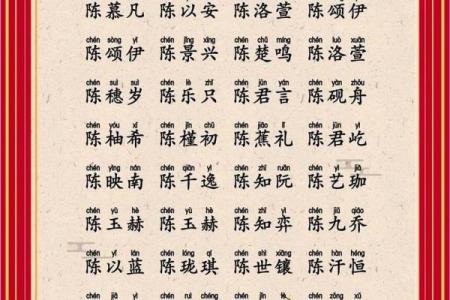 陈慕凡 陈以安 陈洛萱 陈颂伊
chén sòng yī chén jǐng xīng chén chǔ míng chén luò xuān
陈颂伊 陈景兴 陈楚鸣 陈洛萱
chén suì suì chén lè zhī chén jūn yán chén yàn zhōu
陈穗岁 陈乐只 陈君言 陈砚舟
chén yòu xī chén jǐn chū chén jiāo lǐ chén jūn yì
陈柚希 陈槿初 陈蕉礼 陈君屹
chén yìng nán chén qiān yì chén zhī ruǎn chén yì jiā
陈映南 陈千逸 陈知阮 陈艺珈
chén yù hè chén yù hè chén zhī yì chén jiǔ qiáo
陈玉赫 陈玉赫 陈知弈 陈九乔
chén yǐ lán chén lóng qí chén shì xiāng chén hàn héng
陈以蓝 陈珑琪 陈世镶 陈汗恒